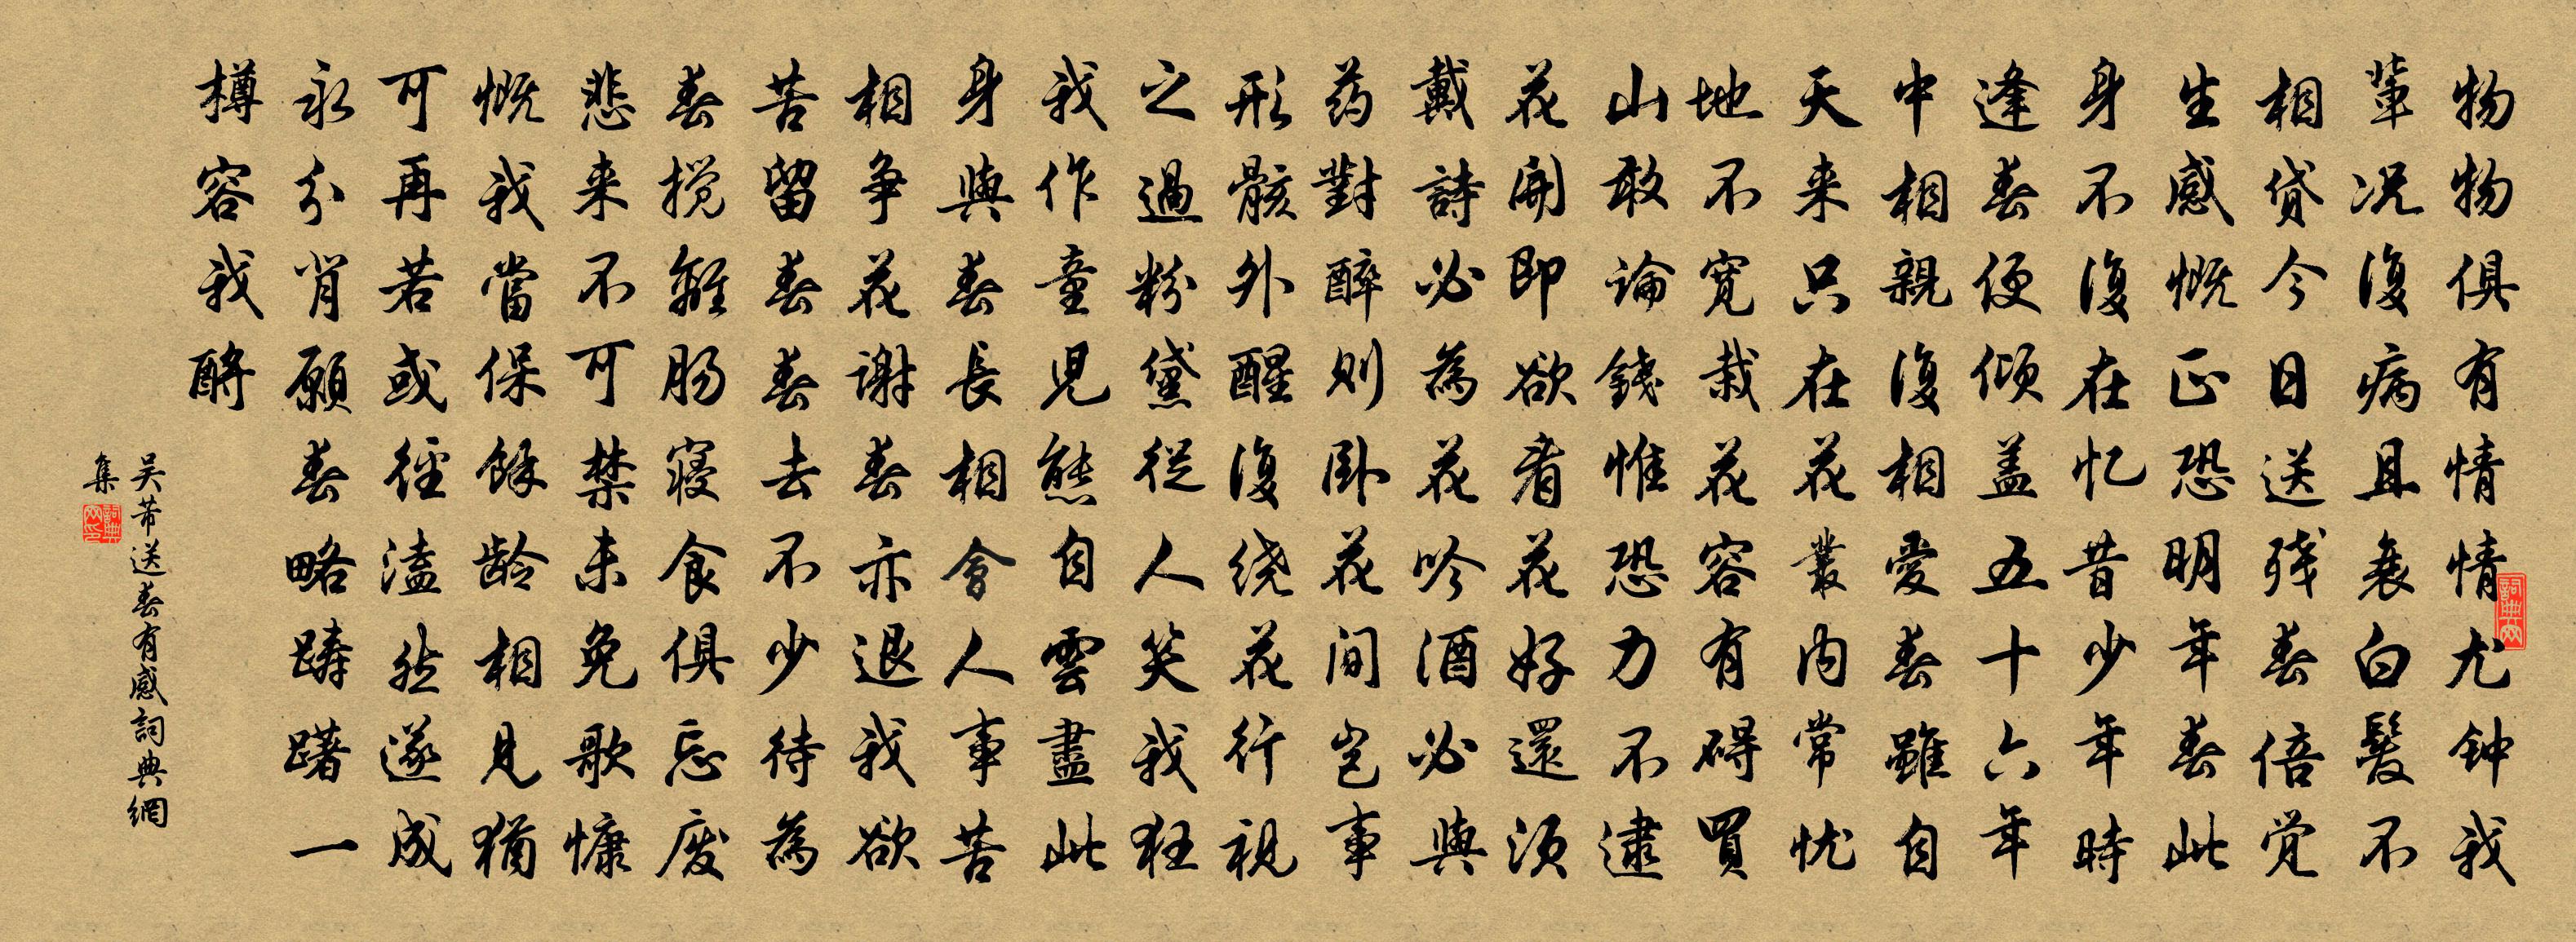 物物俱有情情尤钟我
輩况復病且衰白髮不
相贷今日送残春倍觉
生感慨正恐明年春此
身不復在忆昔少年時
逢春便倾盖五十六年
中相親復相愛春雖自
天来只在花叢内常忧
地不宽栽花容有碍買
山敢論錢惟恐力不逮
花開即欲看花好還须
戴詩必為花吟酒必與
药對醉则卧花间岂事
形骸外醒復绕花行視
之過粉黛從人笑我狂
我作童兒態自雲盡此
身與春長相會人事苦
相争花谢春亦退我欲
苦留春春去不少待為
春搅離肠寝食俱忘废
悲来不可禁未免歌慷
慨我當保餘龄相見猶
可再若或径溘然遂成
永分背願春略踌躇一
樽容我酹
吴芾送春有感詞典網
集
詞典网
詞典网